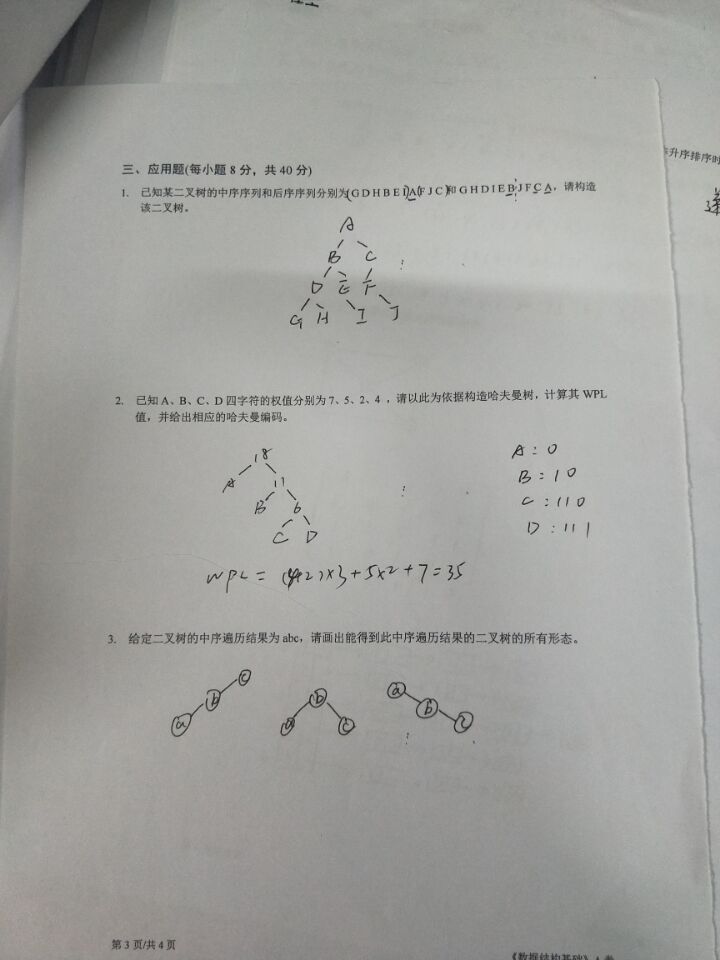 三、应用题(每小题 8 分，共 40 分)
1. 已知某二叉树的中序序列和后序序列分别为(GDHBEI)A(FJC)和 GHDIEBJFCA，请构造
该二叉树。
A
B C
D E F
G H I J
2. 已知 A、B、C、D 四字符的权值分别为 7、5、2、4 ，请以此为依据构造哈夫曼树，计算其 WPL
值，并给出相应的哈夫曼编码。
18
A 11
B 6
C D
A : 0
B : 10
C : 110
D : 111
WPL = (4+2)×3+5×2+7=35
3. 给定二叉树的中序遍历结果为 abc，请画出能得到此中序遍历结果的二叉树的所有形态。
c
b
a
b
a c
a
b
c
第 3 页/共 4 页
《数据结构基础》A 卷
升序排序时